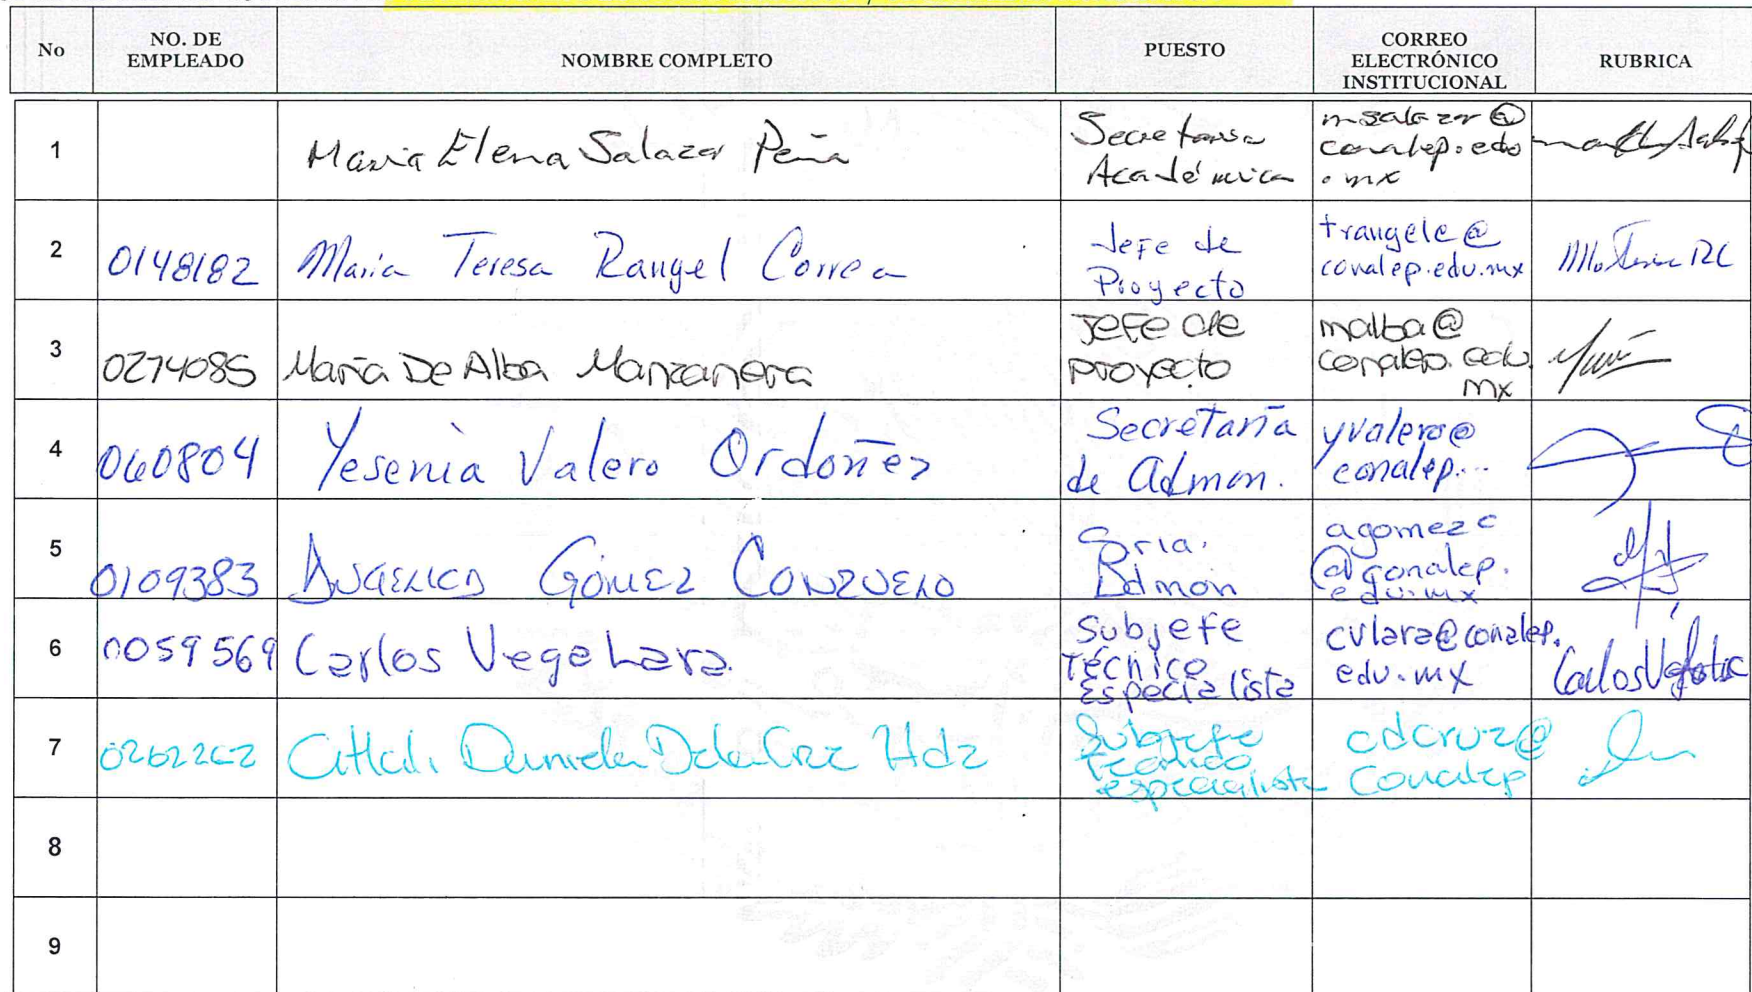 No
NO. DE
EMPLEADO
NOMBRE COMPLETO
PUESTO
CORREO
ELECTRÓNICO
INSTITUCIONAL
RUBRICA
1
Maria Elena Salazar Peña
Secretaria
Académica
msalazar@
conalep.edo
.mx
2
0148182
Maria Teresa Rangel Correa
Jefe de
Proyecto
trangelc@
conalep.edu.mx
Ma Teresa RC
3
0274085
María De Alba Manzanera
Jefe de
proyecto
malba@
conalep.edu.
mx
4
060804
Yesenia Valero Ordoñez
Secretaría
de Admon.
yvalero@
conalep...
5
0109383
Angelica Gómez Conzuelo
Sria.
Admon
agomezc
@conalep.
edu.mx
6
0059569
Carlos Vega Lara
Subjefe
Técnico
Especialista
cvlara@conalep.
edu.mx
7
0262262
Citlali Daniela De la Cruz Hdz
Subjefe
Técnico
especialista
cdcruz@
Conalep
8
9